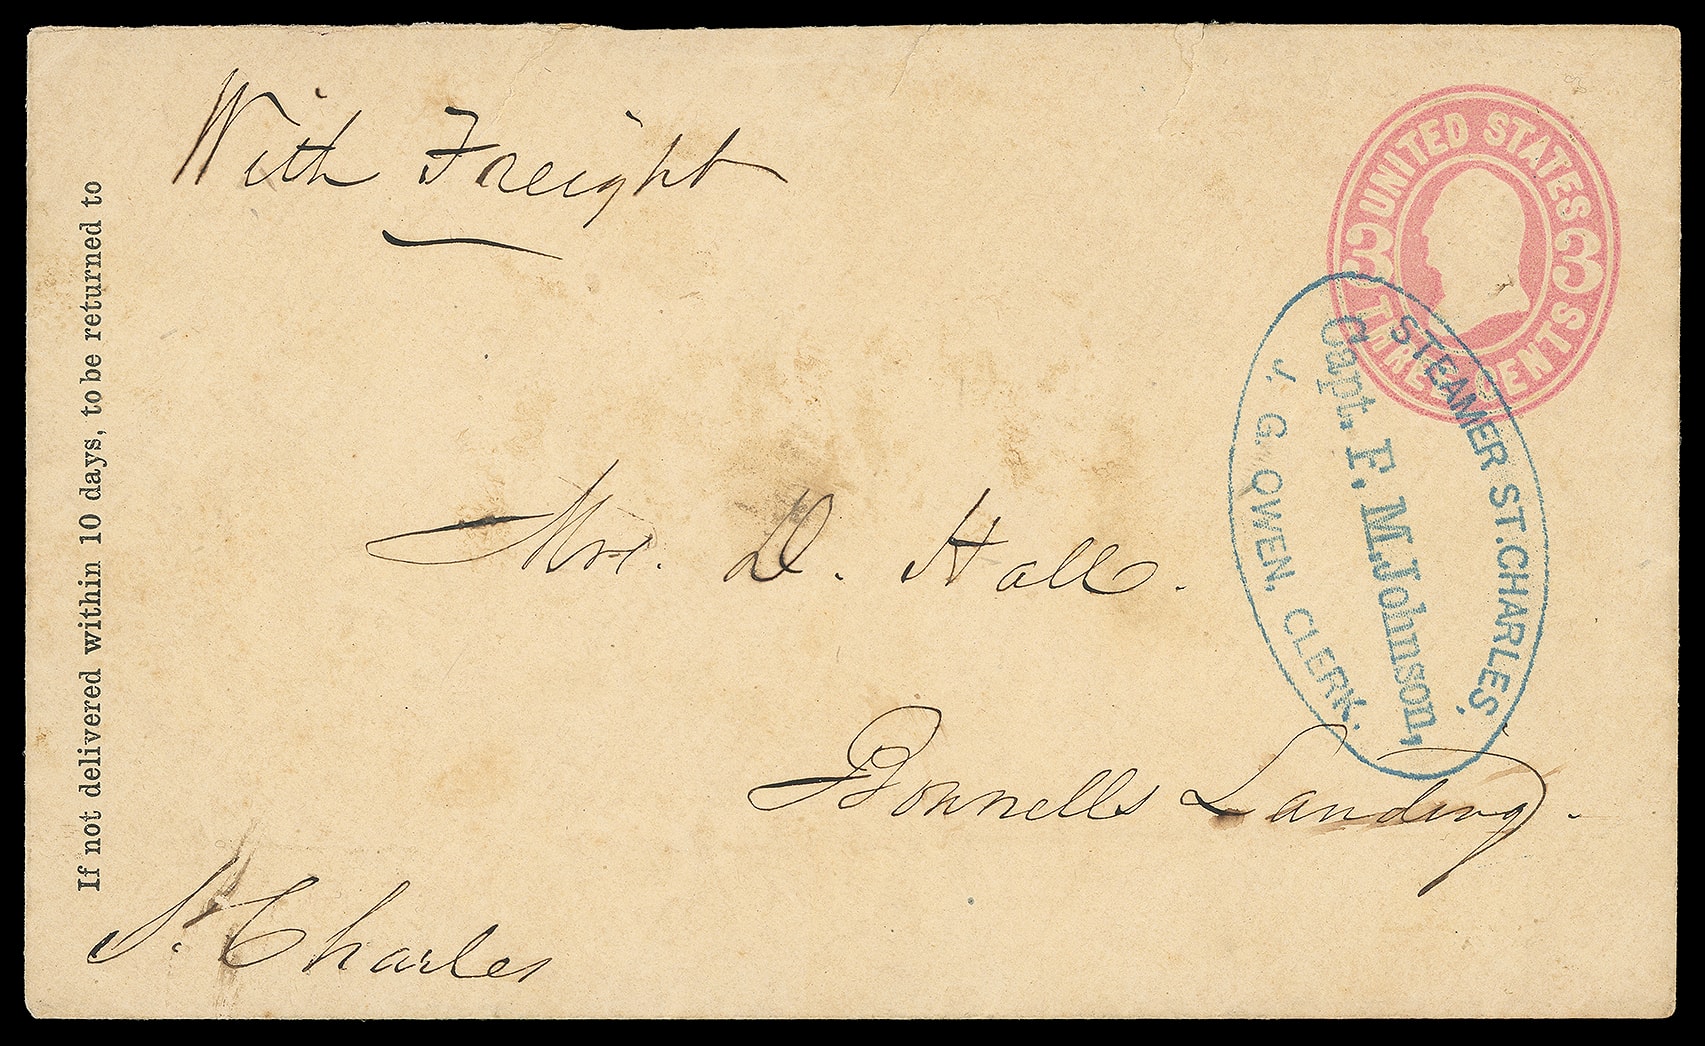 With Freight
UNITED STATES
3 3
THREE CENTS
STEAMER ST. CHARLES,
Capt. F. M. Johnson,
J. G. OWEN, CLERK.
If not delivered within 10 days, to be returned to
Mrs. D. Hall.
Bonnells Landing.
St. Charles